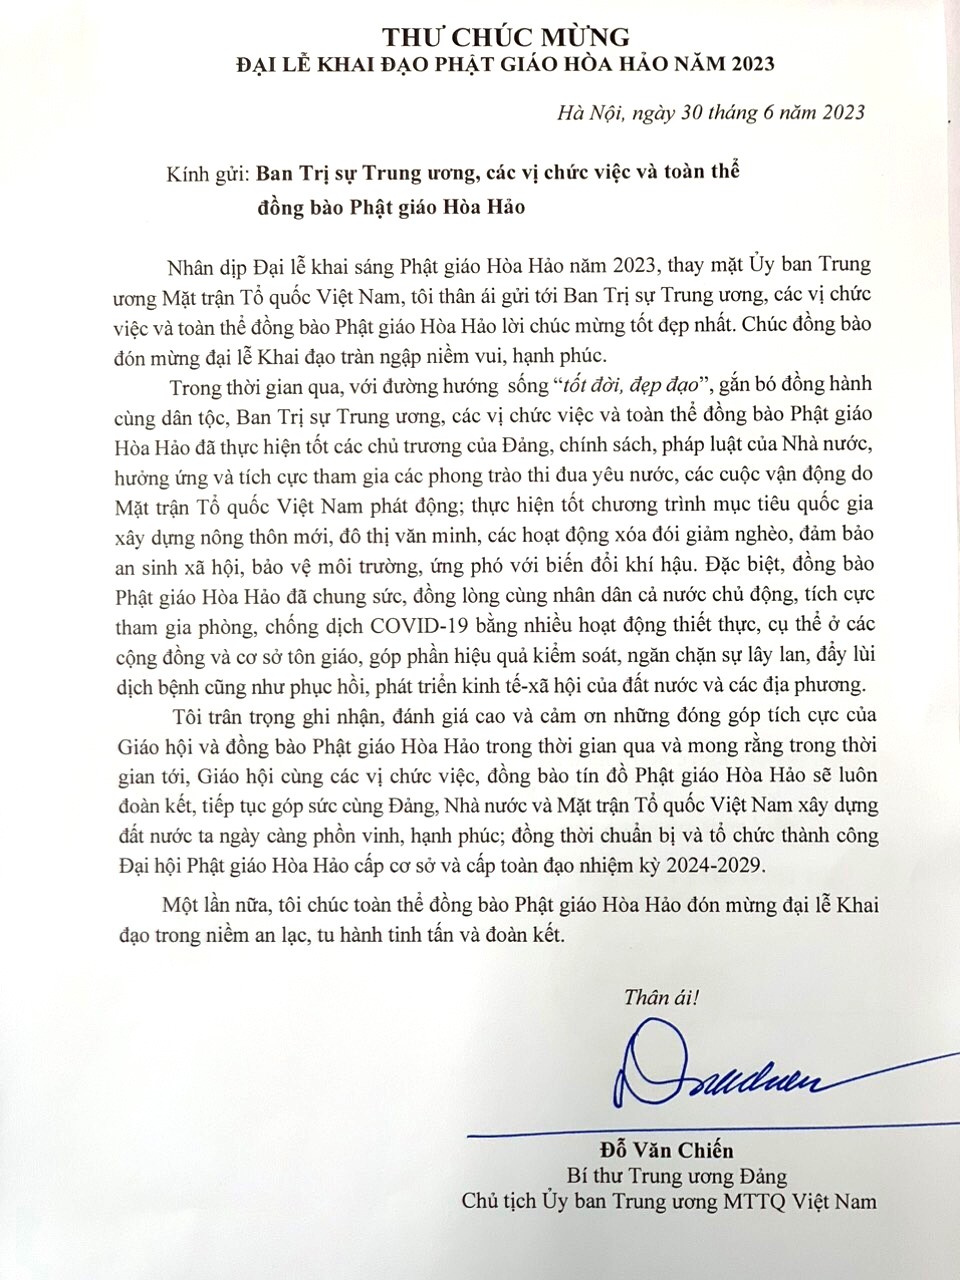 THƯ CHÚC MỪNG
ĐẠI LỄ KHAI ĐẠO PHẬT GIÁO HÒA HẢO NĂM 2023
Hà Nội, ngày 30 tháng 6 năm 2023
Kính gửi: Ban Trị sự Trung ương, các vị chức việc và toàn thể
đồng bào Phật giáo Hòa Hảo
Nhân dịp Đại lễ khai sáng Phật giáo Hòa Hảo năm 2023, thay mặt Ủy ban Trung
ương Mặt trận Tổ quốc Việt Nam, tôi thân ái gửi tới Ban Trị sự Trung ương, các vị chức
việc và toàn thể đồng bào Phật giáo Hòa Hảo lời chúc mừng tốt đẹp nhất. Chúc đồng bào
đón mừng đại lễ Khai đạo tràn ngập niềm vui, hạnh phúc.
Trong thời gian qua, với đường hướng sống “tốt đời, đẹp đạo”, gắn bó đồng hành
cùng dân tộc, Ban Trị sự Trung ương, các vị chức việc và toàn thể đồng bào Phật giáo
Hòa Hảo đã thực hiện tốt các chủ trương của Đảng, chính sách, pháp luật của Nhà nước,
hưởng ứng và tích cực tham gia các phong trào thi đua yêu nước, các cuộc vận động do
Mặt trận Tổ quốc Việt Nam phát động; thực hiện tốt chương trình mục tiêu quốc gia
xây dựng nông thôn mới, đô thị văn minh, các hoạt động xóa đói giảm nghèo, đảm bảo
an sinh xã hội, bảo vệ môi trường, ứng phó với biến đổi khí hậu. Đặc biệt, đồng bào
Phật giáo Hòa Hảo đã chung sức, đồng lòng cùng nhân dân cả nước chủ động, tích cực
tham gia phòng, chống dịch COVID-19 bằng nhiều hoạt động thiết thực, cụ thể ở các
cộng đồng và cơ sở tôn giáo, góp phần hiệu quả kiểm soát, ngăn chặn sự lây lan, đẩy lùi
dịch bệnh cũng như phục hồi, phát triển kinh tế-xã hội của đất nước và các địa phương.
Tôi trân trọng ghi nhận, đánh giá cao và cảm ơn những đóng góp tích cực của
Giáo hội và đồng bào Phật giáo Hòa Hảo trong thời gian qua và mong rằng trong thời
gian tới, Giáo hội cùng các vị chức việc, đồng bào tín đồ Phật giáo Hòa Hảo sẽ luôn
đoàn kết, tiếp tục góp sức cùng Đảng, Nhà nước và Mặt trận Tổ quốc Việt Nam xây dựng
đất nước ta ngày càng phồn vinh, hạnh phúc; đồng thời chuẩn bị và tổ chức thành công
Đại hội Phật giáo Hòa Hảo cấp cơ sở và cấp toàn đạo nhiệm kỳ 2024-2029.
Một lần nữa, tôi chúc toàn thể đồng bào Phật giáo Hòa Hảo đón mừng đại lễ Khai
đạo trong niềm an lạc, tu hành tinh tấn và đoàn kết.
Thân ái!
Đỗ Văn Chiến
Bí thư Trung ương Đảng
Chủ tịch Ủy ban Trung ương MTTQ Việt Nam